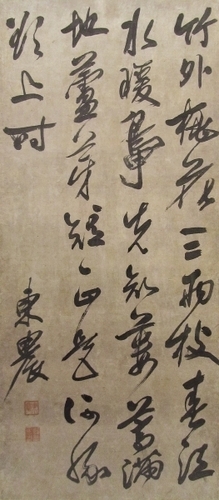 竹外桃花三兩枝春江
水暖鴨先知蔞蒿滿
地蘆芽短正是河豚
欲上時
東農